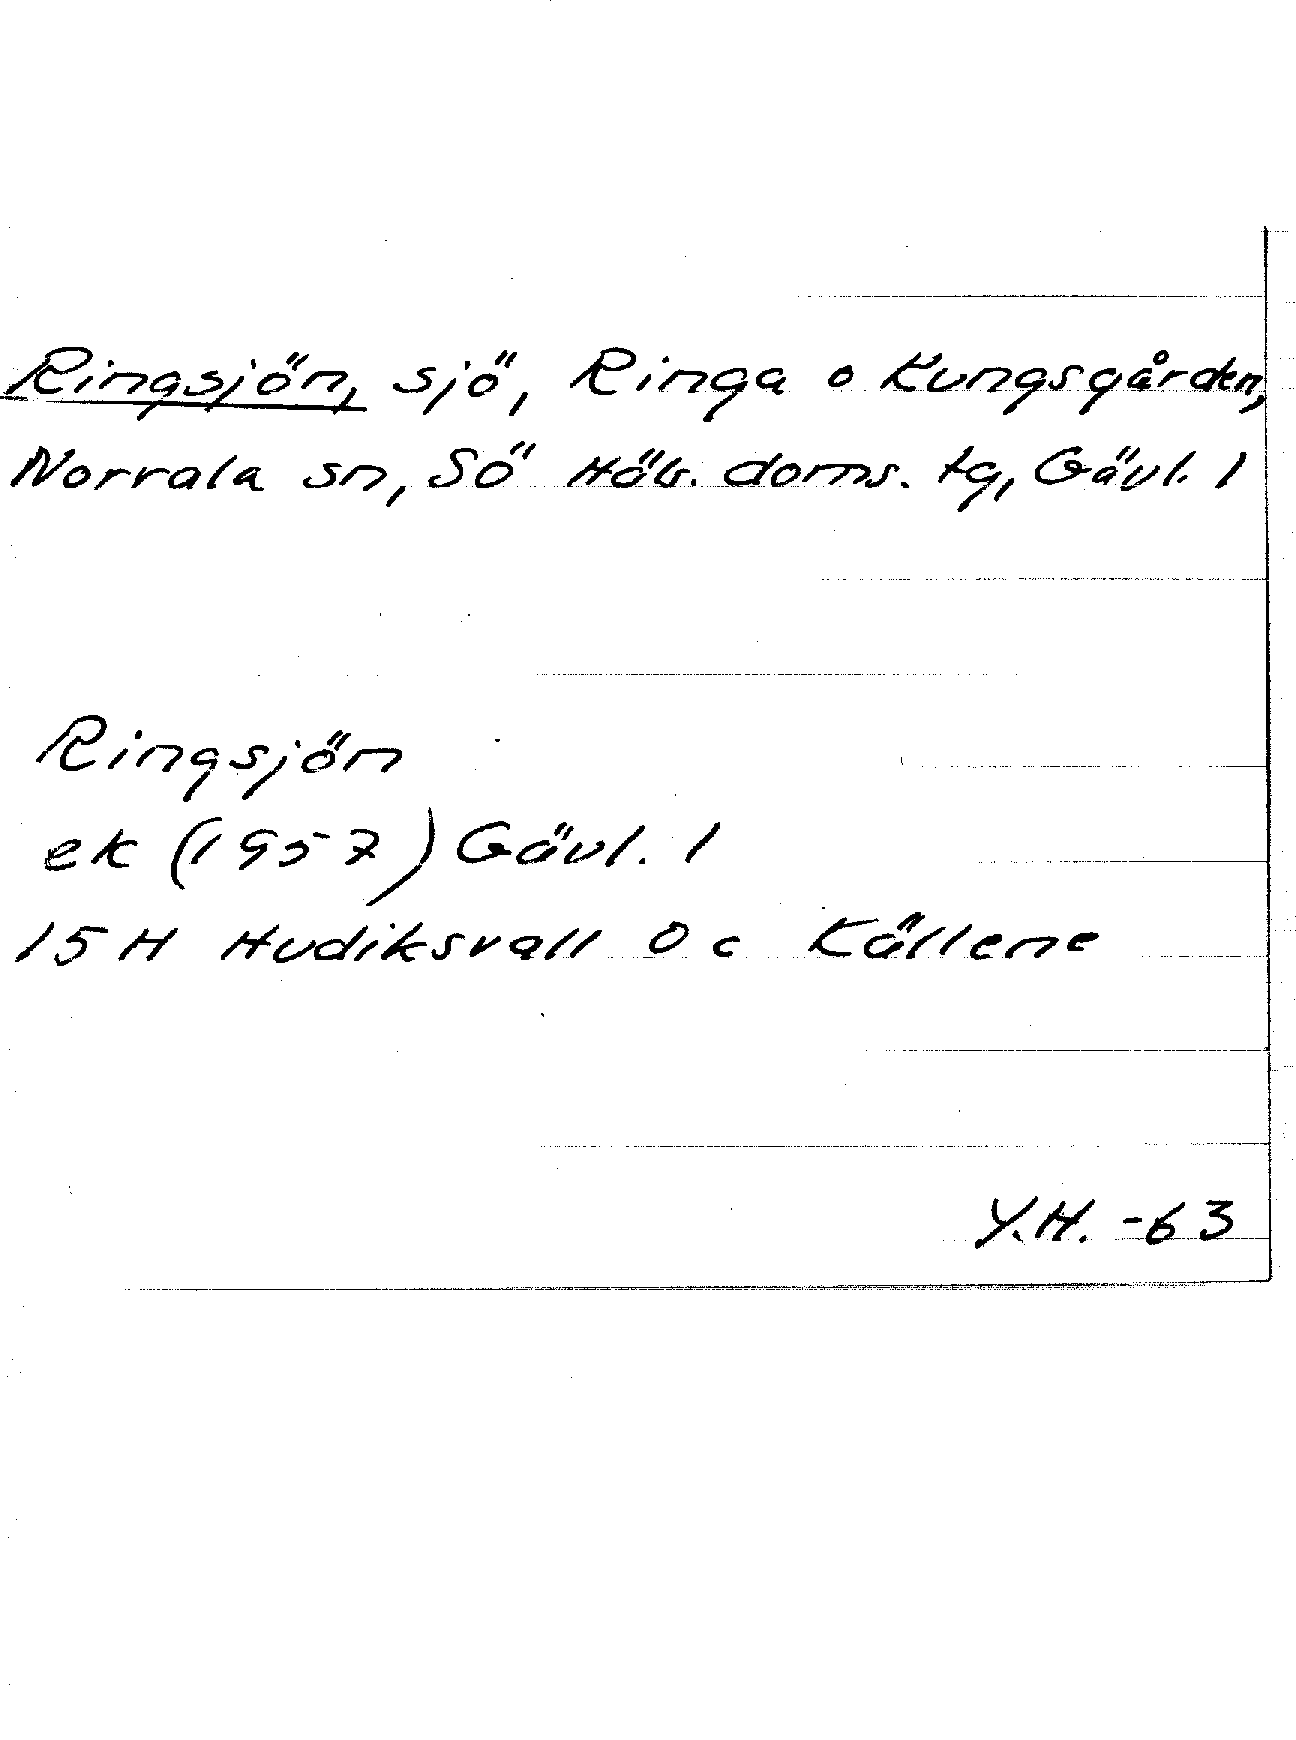 Ringsjön, sjö, Ringa o Kungsgården,
Norrala sn, Sö Häls. doms. tg, Gävl. l
Ringsjön
ek (1957) Gävl. l
15 H Hudiksvall 0 c Källene
Y.H. -63